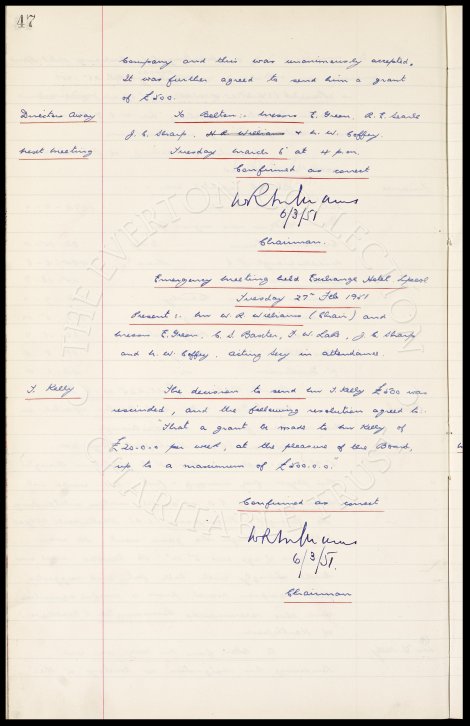 47
Company and this was unanimously accepted.
It was further agreed to send him a grant
of £500.
Directors Away To Bolton:- Messrs E. Green, R. E. Searle
J. C. Sharp, H.R. Williams & N. W. Coffey.
next meeting Tuesday March 6 at 4 p.m.
Confirmed as correct
6/3/51
Chairman.
Emergency Meeting held Exchange Hotel Lpool
Tuesday 27 Feb 1951
Present:- Mr W R Williams (Chair) and
Messrs E. Green, C. S. Baxter, F. W. Lake, J. C. Sharp
and N. W. Coffey. Acting Secy in attendance.
T. Kelly The decision to send Mr T. Kelly £500 was
rescinded, and the following resolution agreed to:-
"That a grant be made to Mr Kelly of
£20-0-0 per week, at the pleasure of the Board,
up to a maximum of £500.0.0."
Confirmed as correct
6/3/51.
Chairman
© THE EVERTON COLLECTION
CHARITABLE TRUST